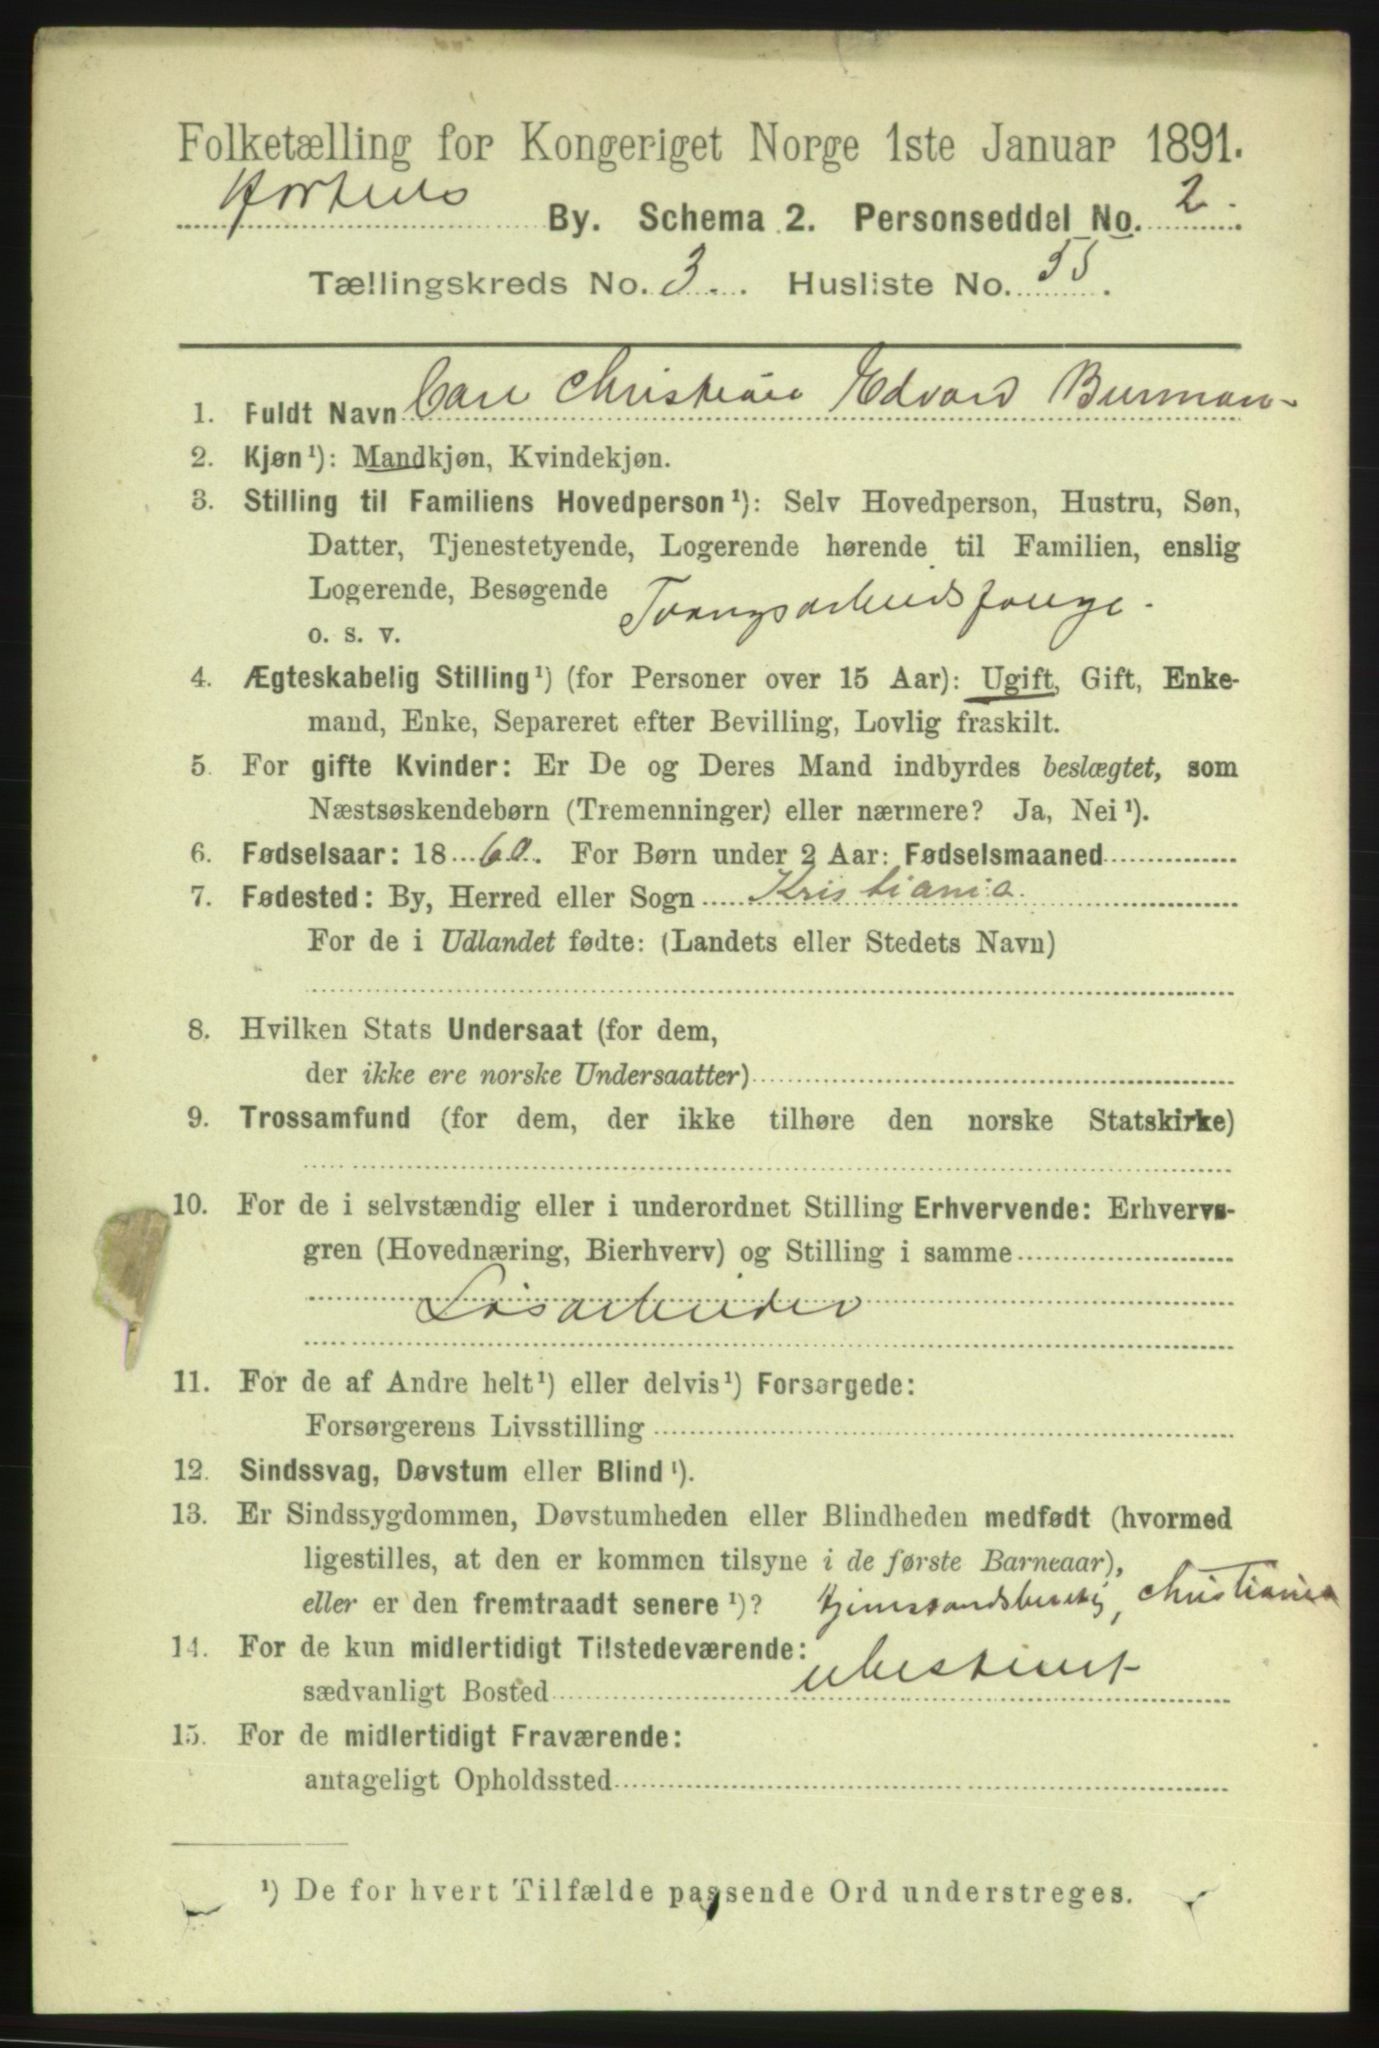 Folketælling for Kongeriget Norge 1ste Januar 1891.
Hortens By. Schema 2. Personseddel No. 2.
Tællingskreds No. 3. Husliste No. 55.
1. Fuldt Navn Carl Christian Edvard Burman
2. Kjøn ¹): Mandkjøn, Kvindekjøn.
3. Stilling til Familiens Hovedperson ¹): Selv Hovedperson, Hustru, Søn,
Datter, Tjenestetyende, Logerende hørende til Familien, enslig
Logerende, Besøgende Tvangsarbeidsfange.
o. s. v.
4. Ægteskabelig Stilling ¹) (for Personer over 15 Aar): Ugift, Gift, Enke-
mand, Enke, Separeret efter Bevilling, Lovlig fraskilt.
5. For gifte Kvinder: Er De og Deres Mand indbyrdes beslægtet, som
Næstsøskendebørn (Tremenninger) eller nærmere? Ja, Nei ¹).
6. Fødselsaar: 1860. For Børn under 2 Aar: Fødselsmaaned
7. Fødested: By, Herred eller Sogn Kristiania
For de i Udlandet fødte: (Landets eller Stedets Navn)
8. Hvilken Stats Undersaat (for dem,
der ikke ere norske Undersaatter)
9. Trossamfund (for dem, der ikke tilhøre den norske Statskirke)
10. For de i selvstændig eller i underordnet Stilling Erhvervende: Erhvervs-
gren (Hovednæring, Bierhverv) og Stilling i samme
Løsarbeider
11. For de af Andre helt ¹) eller delvis ¹) Forsørgede:
Forsørgerens Livsstilling
12. Sindssvag, Døvstum eller Blind ¹).
13. Er Sindssygdommen, Døvstumheden eller Blindheden medfødt (hvormed
ligestilles, at den er kommen tilsyne i de første Barneaar),
eller er den fremtraadt senere ¹)? Christiania
14. For de kun midlertidigt Tilstedeværende: ubestemt
sædvanligt Bosted
15. For de midlertidigt Fraværende:
antageligt Opholdssted
¹) De for hvert Tilfælde passende Ord understreges.